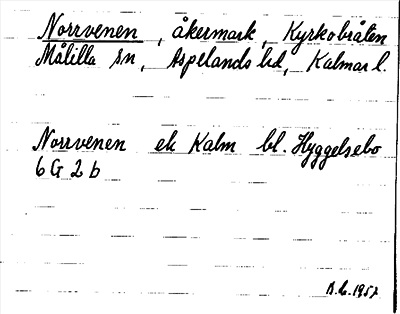 Norrvenen, åkermark, Kyrkobråten
Målilla sn, Aspelands hd, Kalmar l.
Norrvenen ek Kalm bl. Hyggelsebo
6 G 2 b
1957